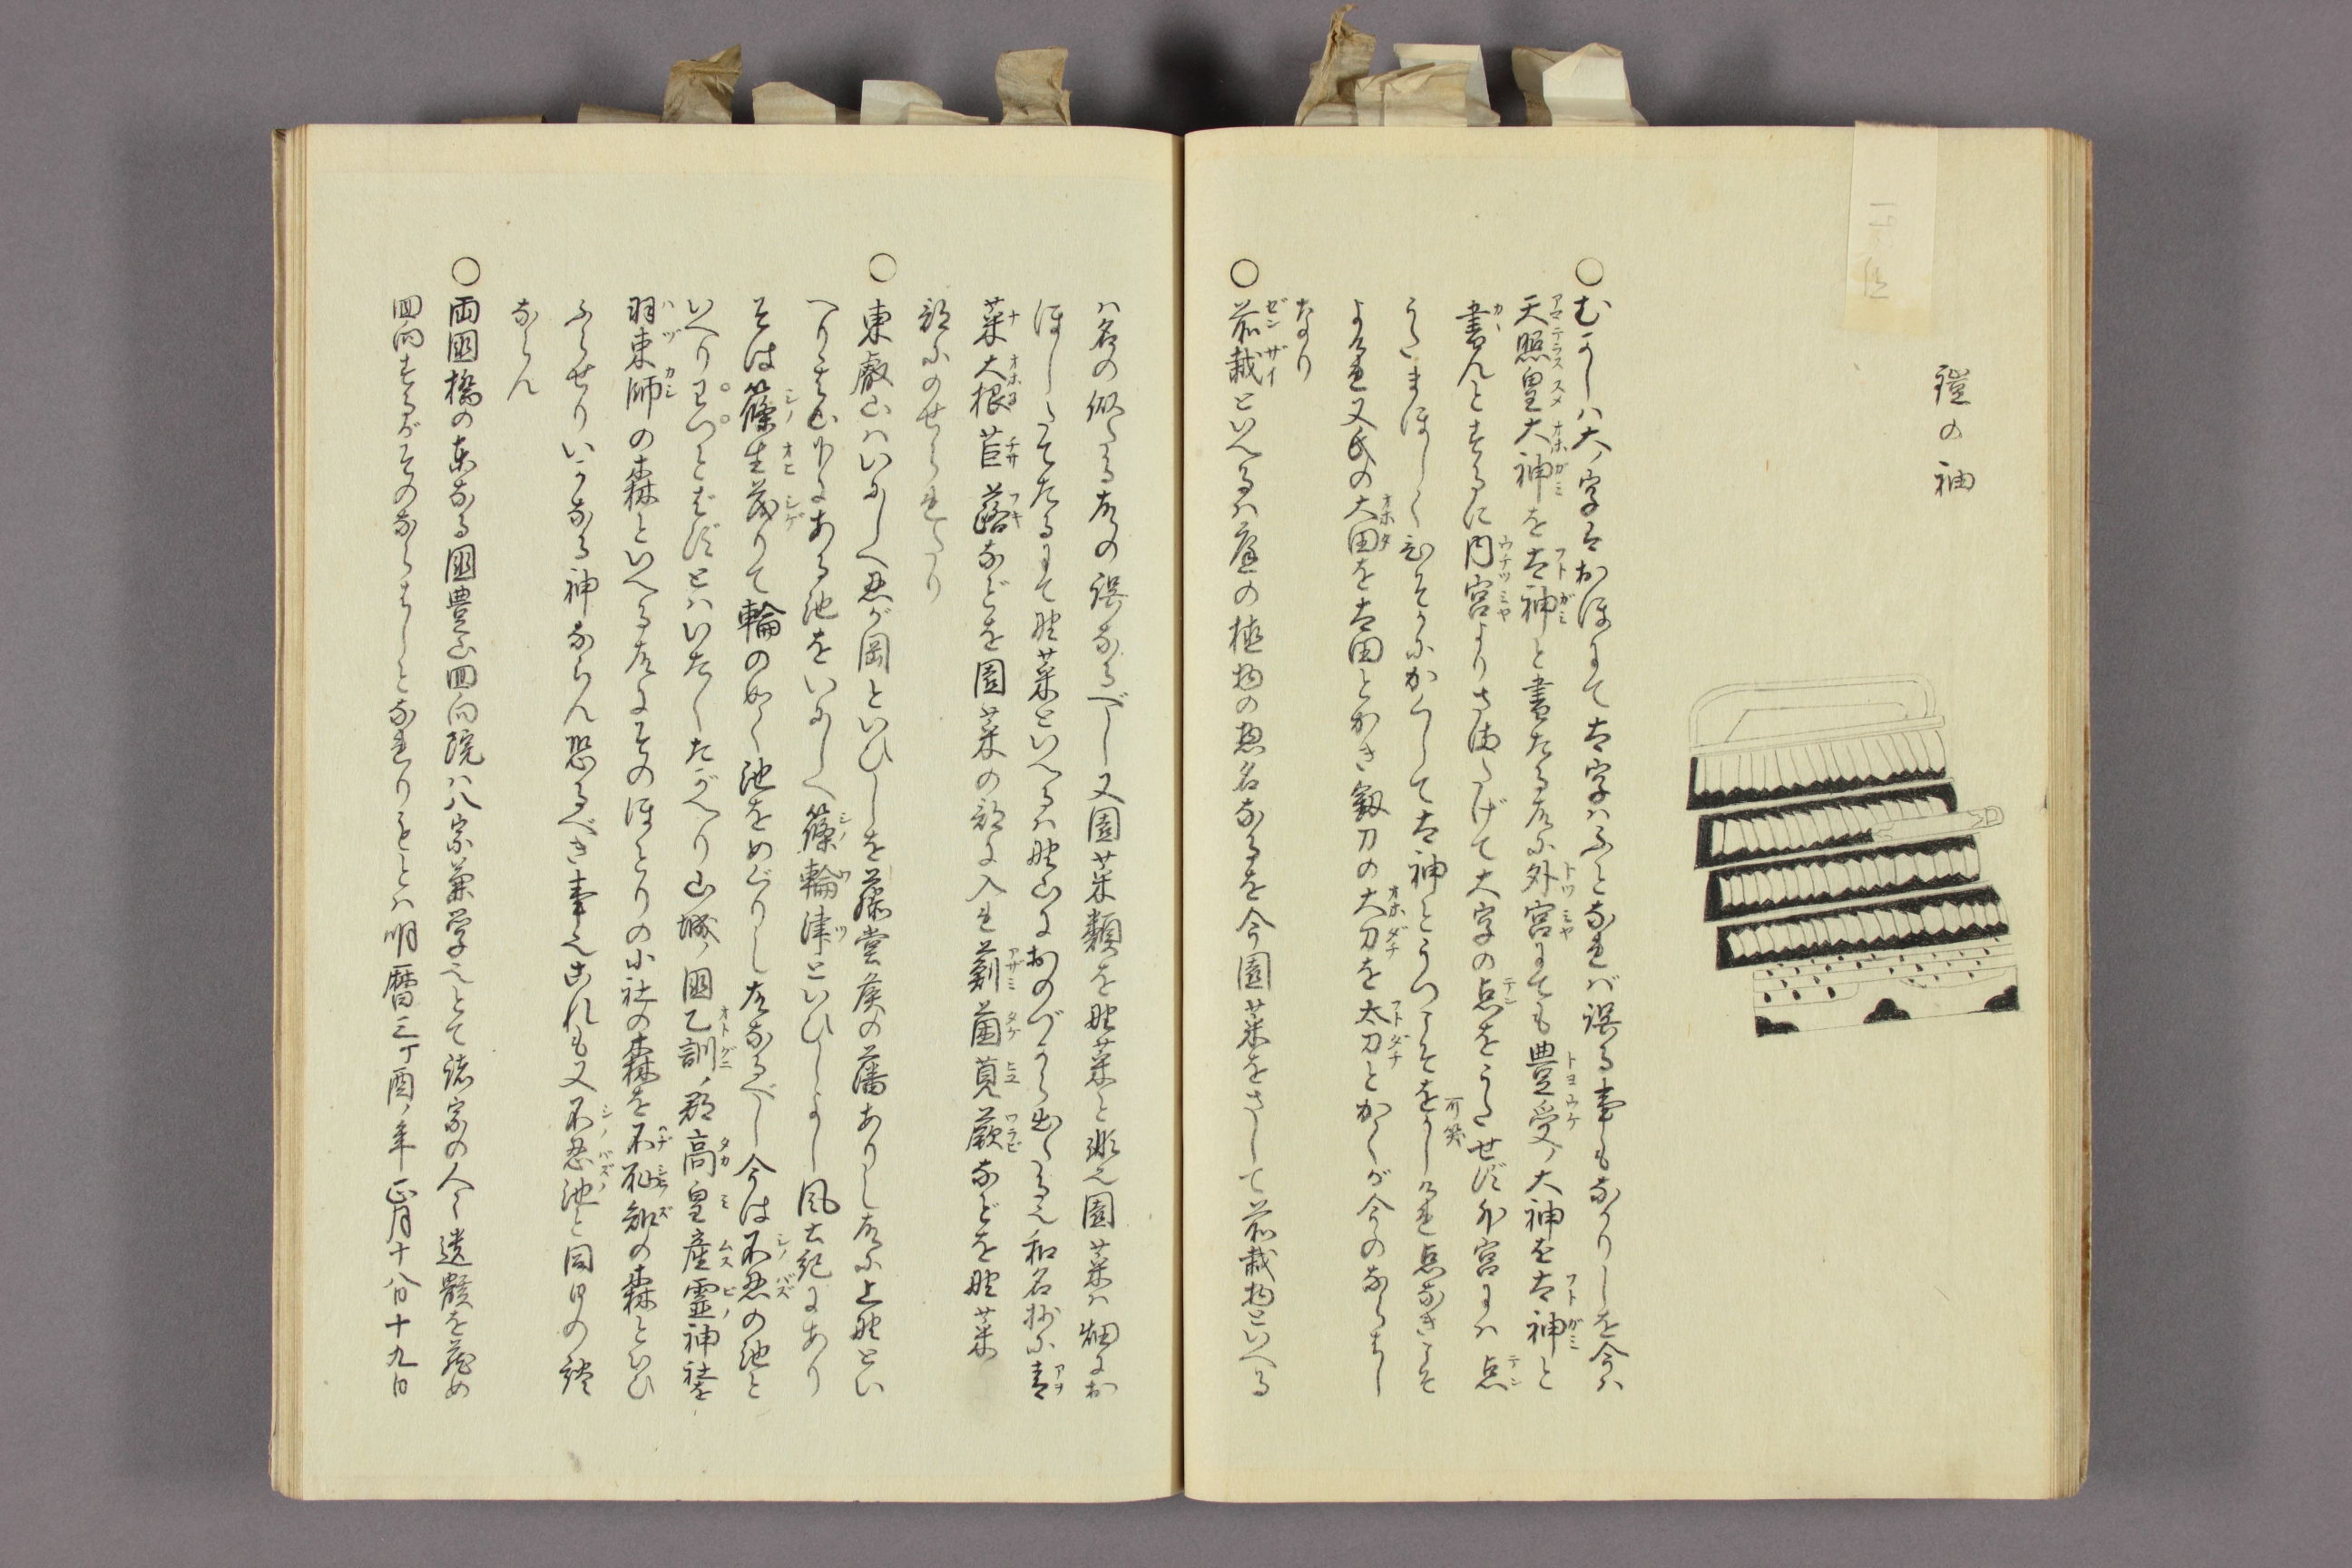 鎧の袖
○むかしハ大ノ字はおほにて太字ハふとなれバ誤る事もなかりしを今ハ
天照皇大神を太神と書たる所に外宮にても豊受ノ大神を太神と
書んとするに内宮よりさまたげて大字の点をうたせず外宮にハ点
うたまほしくひそかにかくして太神とうつこそをかしけれ点なきこそ
よけれ又氏の大田を太田とかき釼刀の大刀を太刀とかくが今のならはし
なり
○前栽といへるハ庭の植物の惣名なるを今園菜をさして前栽物といへる
ハ名の似たる故の誤なるべし又園菜類を野菜と云園菜ハ畑にお
ほしたてたるにて野菜といへるハ野山におのづから出くる也和名抄に青
菜大根苣蕗などを園菜の部に入れ薊菌莧蕨などを野菜
部にのせられたり
○東叡山ハいにしへ忍が岡といひしを藤堂侯の藩ありし故に上野とい
へり其山下にある池をいにしへ篠輪津といひしよし風土記にあり
そは篠生茂りて輪の如く池をめぐりし故なるべし今は不忍の池と
いへりわつとばずとハいたくたがへり山城ノ国乙訓ノ郡高皇産霊神社を
羽束師の森といへる故にそのほとりの小社の森を不恥知の森といひ
ふらせりいかなる神ならん恐るべき事也これも又不忍池と同日の談
ならん
○両国橋の東なる国豊山回向院ハ八宗兼学也とて諸家の人々遺骸を葬め
回向するがそのならはしとなれりもとハ明暦三丁酉ノ年正月十八日十九日